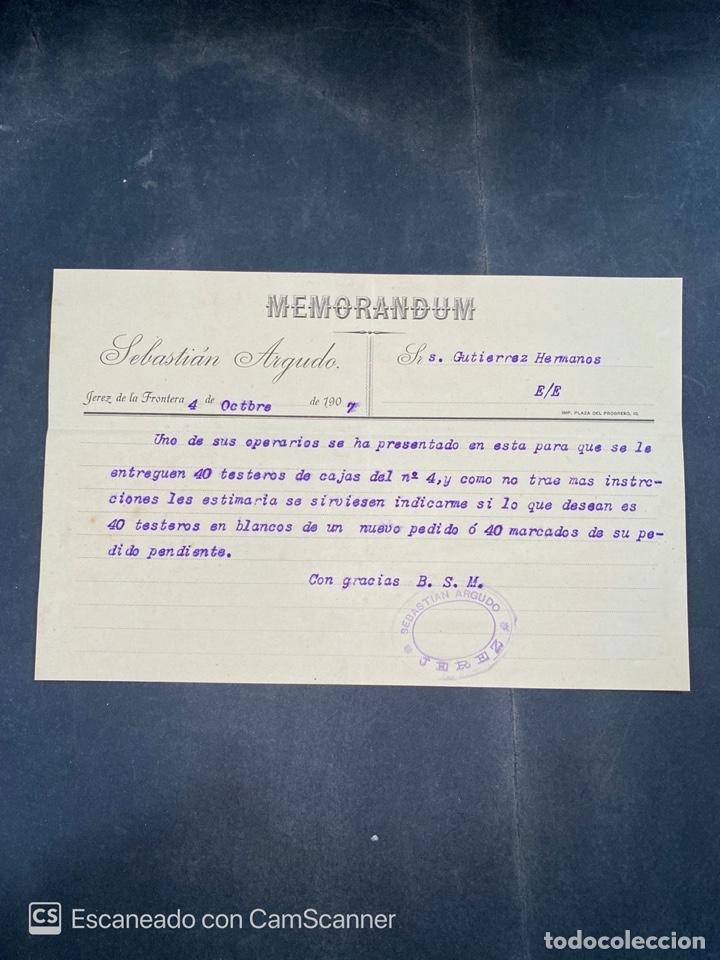 MEMORANDUM
Sebastián Argudo.
Jerez de la Frontera 4 de Octbre de 1907
Sr s. Gutierrez Hermanos
E/E
IMP. PLAZA DEL PROGRESO, 10.
Uno de sus operarios se ha presentado en esta para que se le
entreguen 40 testeros de cajas del nº 4,y como no trae mas instrc-
ciones les estimaria se sirviesen indicarme si lo que desean es
40 testeros en blancos de un nuevo pedido ó 40 marcados de su pe-
dido pendiente.
Con gracias B. S. M.
SEBASTIAN ARGUDO
JEREZ
CS Escaneado con CamScanner
todocoleccion